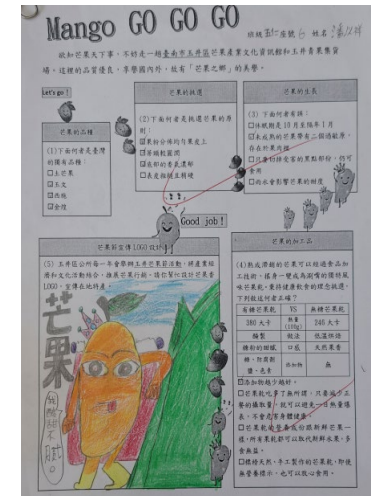 Mango GO GO GO
班級 座號 6 姓名
欲知芒果天下事，不妨走一趟臺南市玉井區芒果產業文化資訊館和玉井青果集貨
場。這裡的品質優良，享譽國內外，故有「芒果之鄉」的美譽。
Let's go！
芒果的品種
(1)下面何者是臺灣
的獨有品種：
□土芒果
☑玉文
☑金煌
芒果的挑選
(2)下面何者是挑選芒果的原
則：
☑果粉分佈均勻果皮上
☑濃郁的香氣濃郁
芒果的生長
(3) 下面何者有誤：
□休眠期是10月至隔年1月
存在於果肉裡
食用
□雨水會影響芒果的甜度
Good job！
芒果節宣傳LOGO設計
(5) 玉井區公所每一年會舉辦玉井芒果節活動，將產業經
濟和文化活動結合，推展芒果行銷。請你幫忙設計芒果香
LOGO，宣傳在地特產。
芒果
芒果的加工品
(4)熟成濃甜的芒果可以經過食品加
工技術，搖身一變成為涮嘴的獨特風
味芒果乾。秉持健康飲食的理念挑選，
下列敘述何者正確？
有糖芒果乾 VS 無糖芒果乾
380 大卡 熱量(100g) 245 大卡
糖製 做法 低溫烘焙
糖粉的甜膩 口感 天然果香
糖、防腐劑
鹽、色素 添加物 無
□添加物越少越好。
□芒果乾吃多了無所謂，只要減少正
餐的攝取量，就可以避免一日熱量爆
表，不會危害身體健康。
□芒果乾的營養成份跟新鮮芒果一
樣，所有果乾都可以取代新鮮水果，多
食無益。
□標榜天然、手工製作的芒果乾，即使
無營養標示，也可以放心食用。